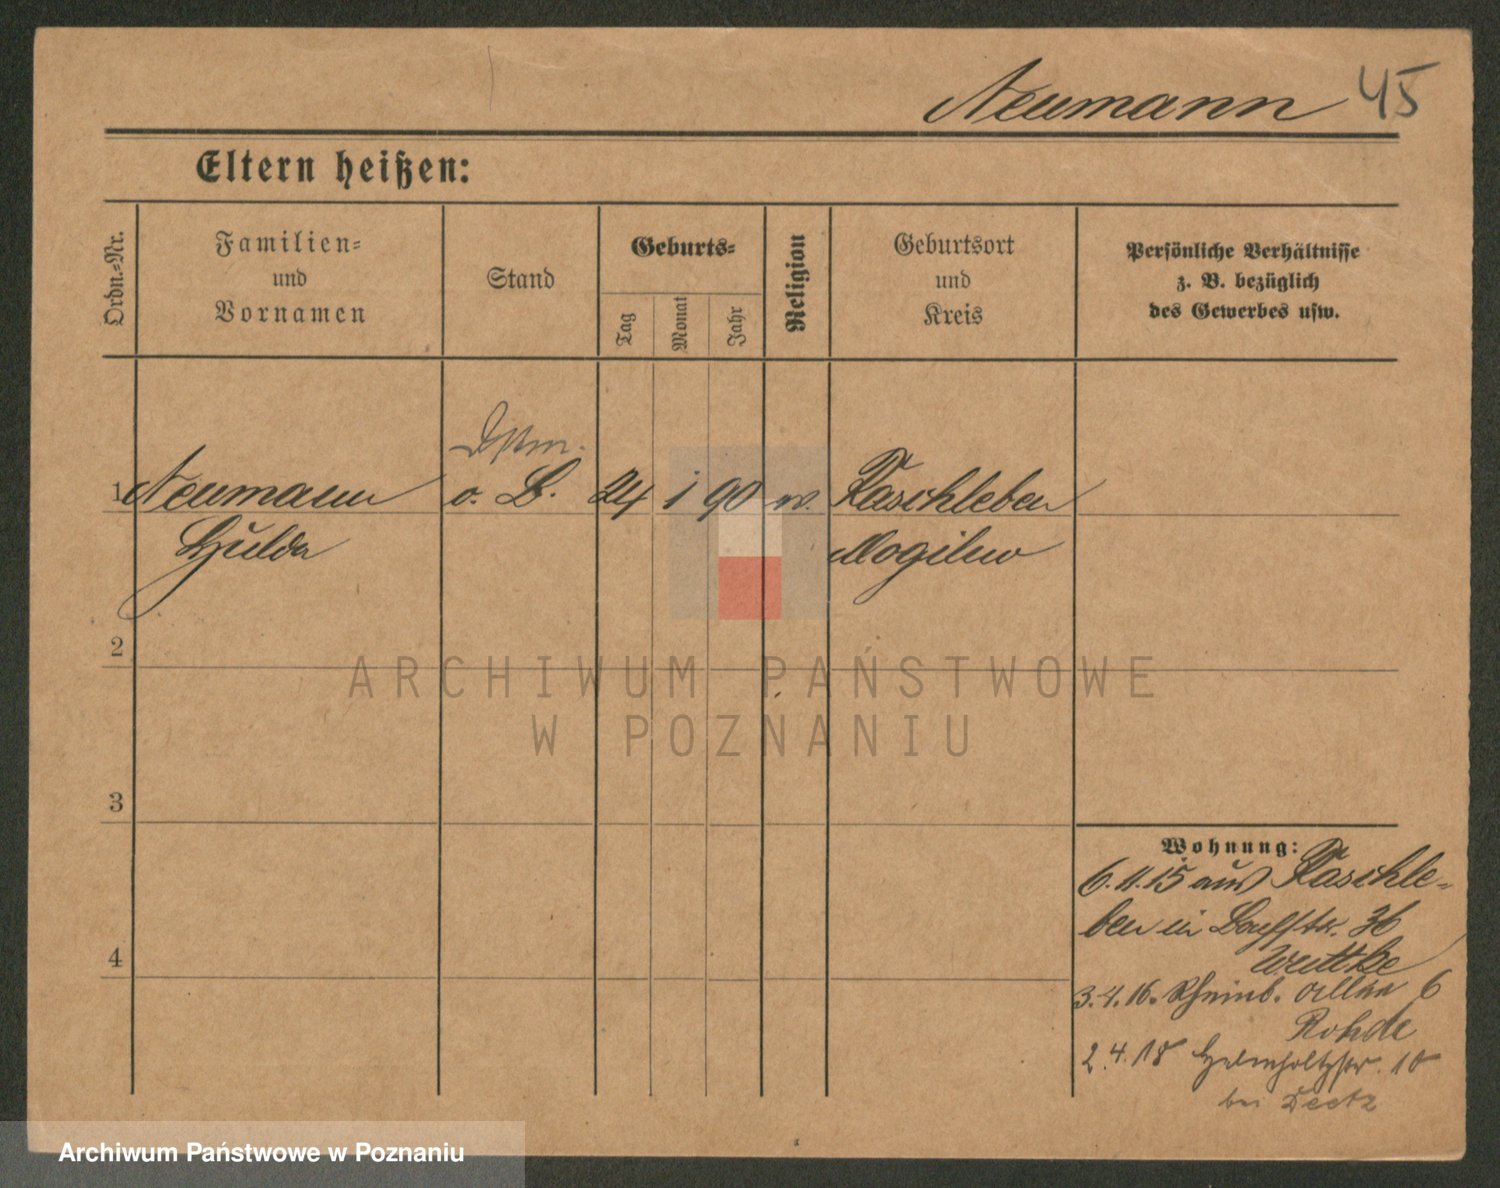 Neumann 45
Eltern heißen:
Ordn.-Nr.
Familien-
und
Vornamen
Stand
Geburts-
Tag
Monat
Jahr
Religion
Geburtsort
und
Kreis
Persönliche Verhältnisse
z. B. bezüglich
des Gewerbes usw.
1 Neumann o. B. 24 1 90 Kaschleben
Hulda Mogilno
2
3
4
Wohnung:
6.11.15 aus Kaschle-
ben in 36
Wuttke
3.4.16. Rheinb. Allee 6
Rohde
2.4.18 Helmholtzstr. 10
bei Deetz
ARCHIWUM PAŃSTWOWE
W POZNANIU
Archiwum Państwowe w Poznaniu